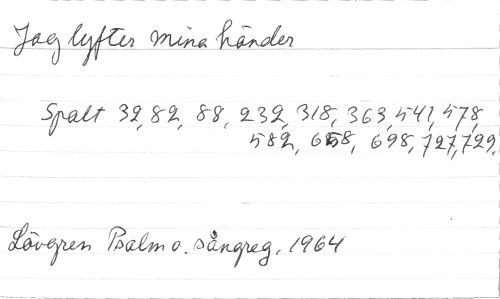 Jag lyfter mina händer
Spalt 32, 82, 88, 232, 318, 363, 541, 578,
582, 658, 698, 727, 729,
Lövgren Psalm o. sångreg. 1964